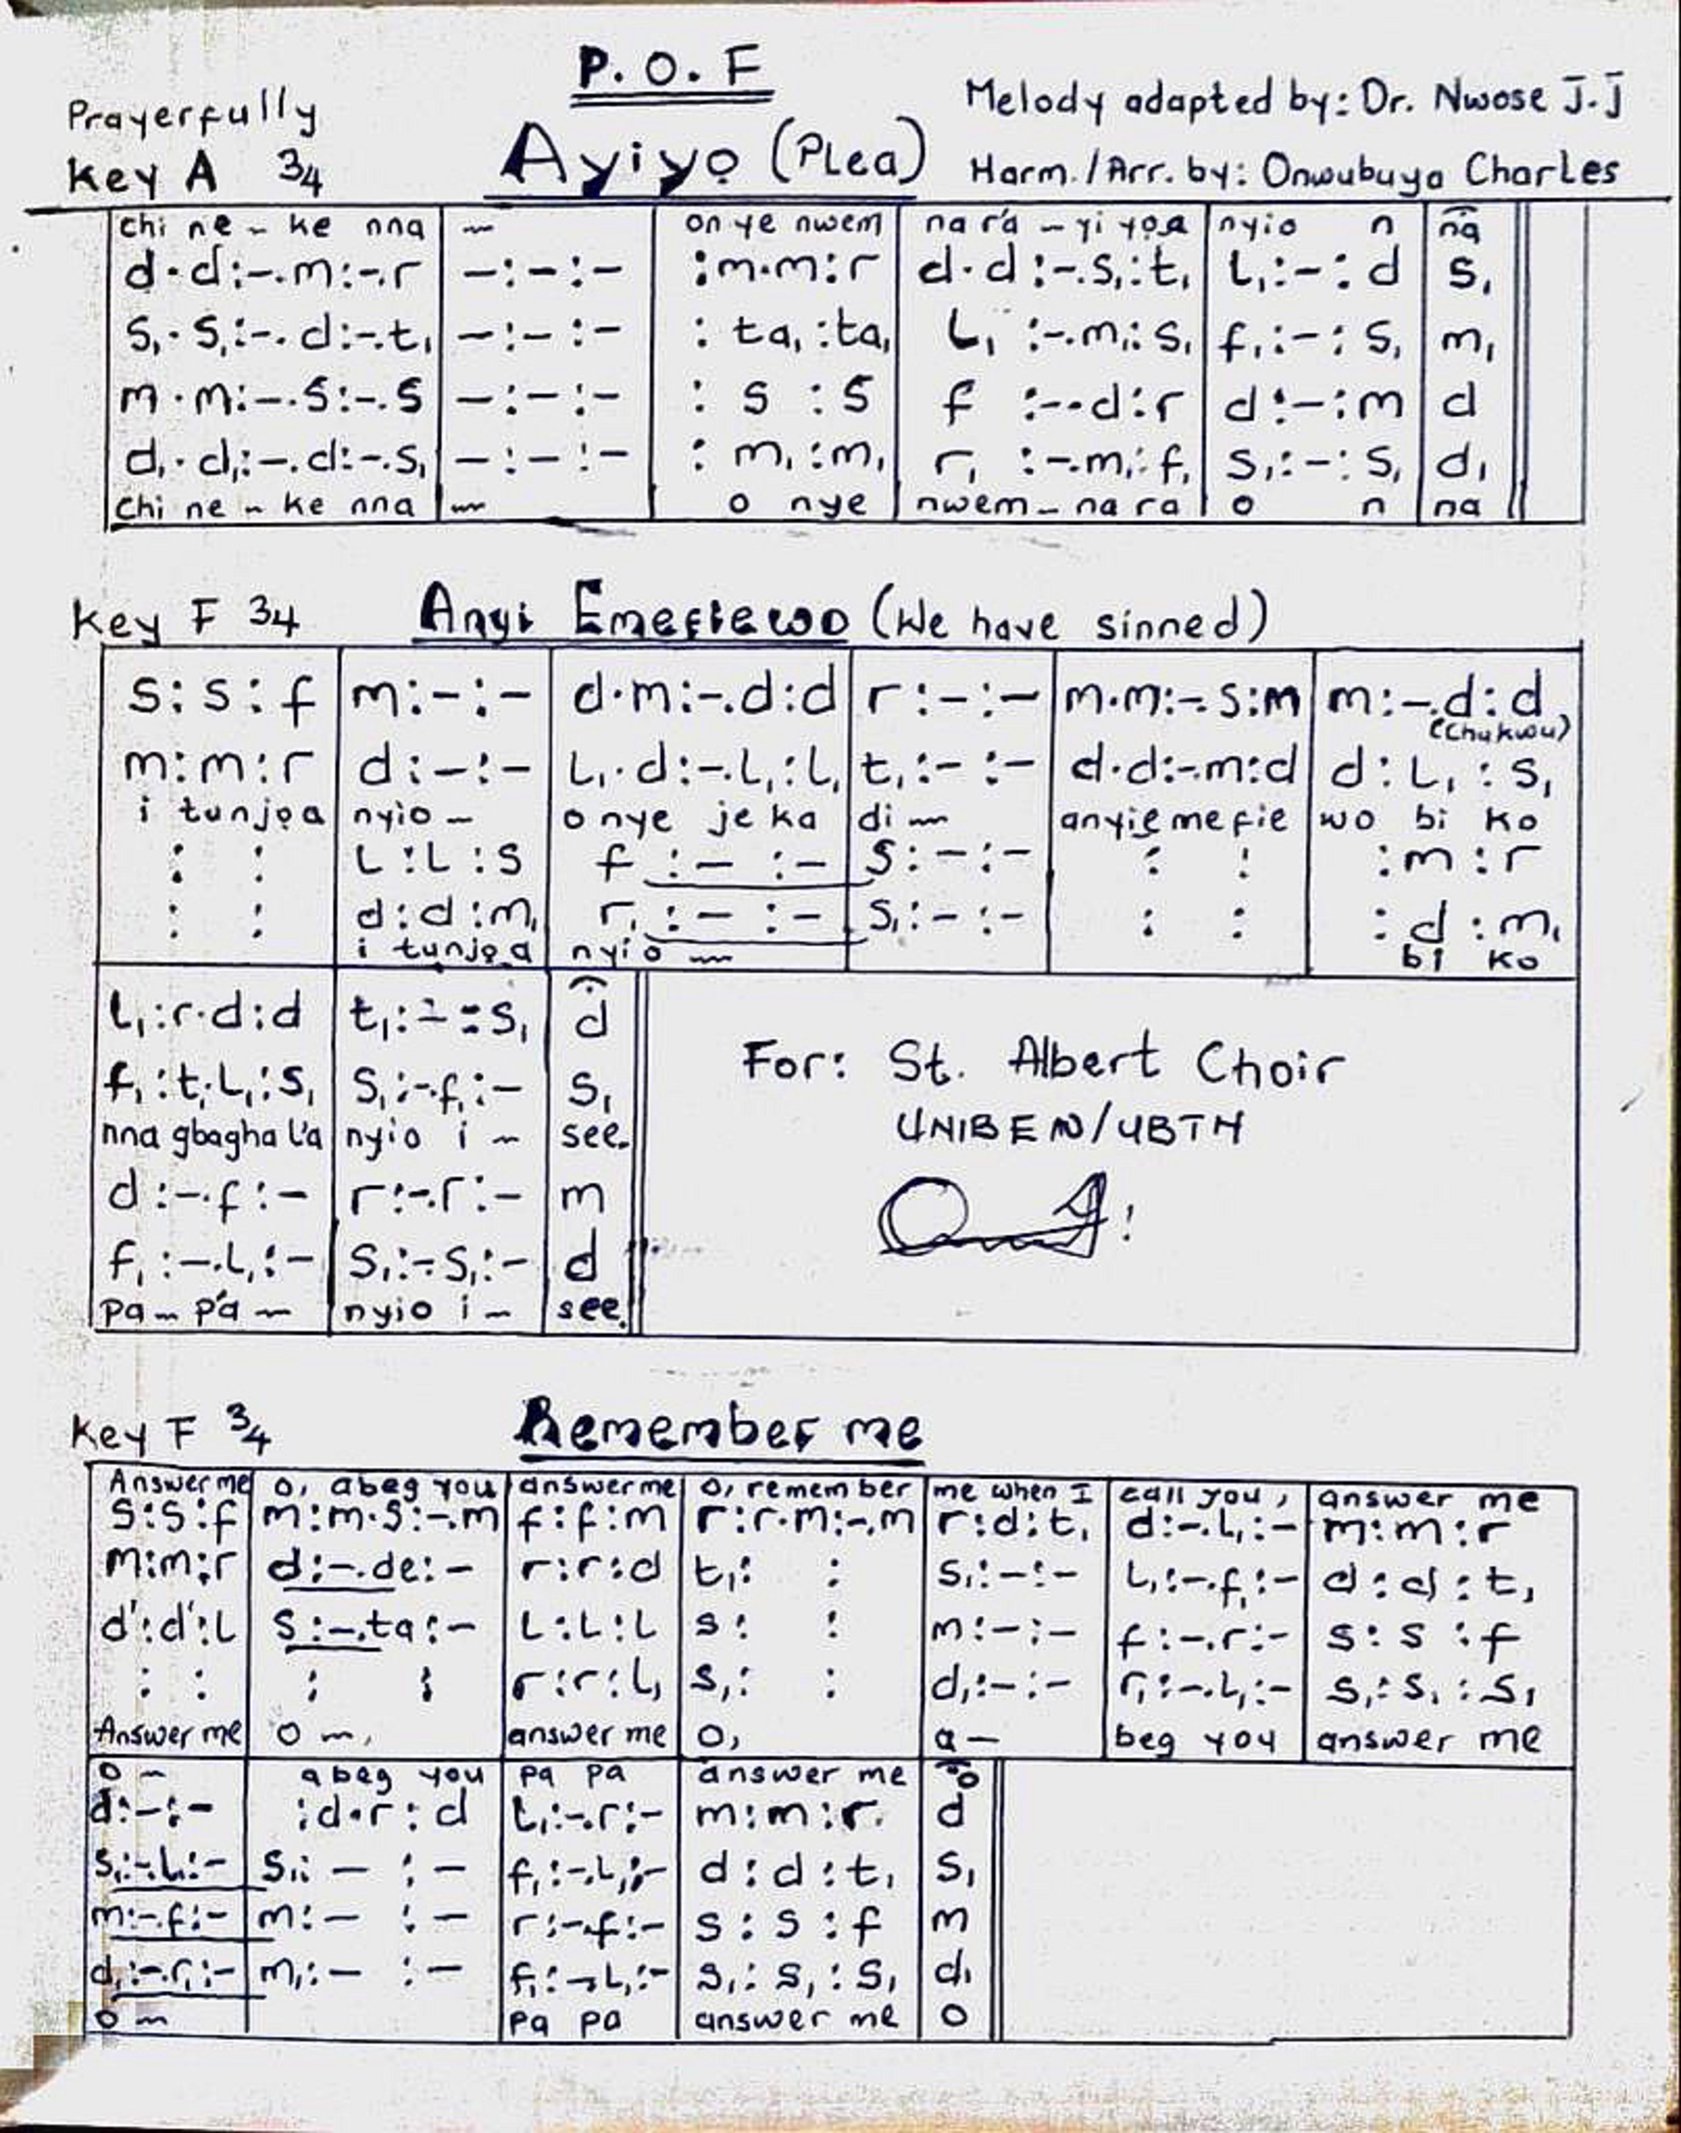 P.O.F
Prayerfully
Melody adapted by: Dr. Nwose J.J
Key A 3/4 Ayiyọ (Plea) Harm./Arr. by: Onwubuya Charles
chi ne - ke nna ~ on ye nwem na r'a - yi yọa nyio n na
d.d:-.m:-.r | -:-:- | :m.m:r | d.d:-.s₁:t₁ | l₁:-:d | s₁
s₁.s₁:-.d:-.t₁ | -:-:- | :ta₁:ta₁ | l₁:-.m₁:s₁ | f₁:-:s₁ | m₁
m.m:-.s:-.s | -:-:- | :s:s | f:-.d:r | d:-:m | d
d₁.d₁:-.d:-.s₁ | -:-:- | :m₁:m₁ | r₁:-.m₁:f₁ | s₁:-:s₁ | d₁
chi ne - ke nna ~ o nye nwem - na ra o n na
Key F 3/4 Anyi Emefiewo (We have sinned)
s:s:f | m:-:- | d.m:-.d:d | r:-:- | m.m:-.s:m | m:-.d:d
(Chukwu)
m:m:r | d:-:- | l₁.d:-.l₁:l₁ | t₁:-:- | d.d:-.m:d | d:l₁:s₁
i tunjọa nyio - onye je ka di ~ anyiemefie wo bi ko
: : | l:l:s | f:-:- | s:-:- | : : | :m:r
: : | d:d:m₁ | r₁:-:- | s₁:-:- | : : | :d:m₁
i tunjọa nyio ~ bi ko
l₁:r.d:d | t₁:-:s₁ | d
f₁:t₁.l₁:s₁ | s₁:-.f₁:- | s₁
nna gbagha l'a nyio i ~ see.
d:-.f:- | r:-.r:- | m
f₁:-.l₁:- | s₁:-.s₁:- | d
pa ~ p'a ~ nyio i ~ see.
For: St. Albert Choir
UNIBEN/UBTH
Key F 3/4 Remember me
Answer me o, abeg you answer me o, remember me when I call you, answer me
s:s:f | m:m.s:-.m | f:f:m | r:r.m:-.m | r:d:t₁ | d:-.l₁:- | m:m:r
m:m:r | d:-.de:- | r:r:d | t₁: : | s₁:-:- | l₁:-.f₁:- | d:d:t₁
d':d':l | s:-.ta:- | l:l:l | s: : | m:-:- | f:-.r:- | s:s:f
: : | : : | r:r:l₁ | s₁: : | d₁:-:- | r₁:-.l₁:- | s₁:s₁:s₁
Answer me o ~, answer me o, a - beg you answer me
o ~ abeg you pa pa answer me o
d:-:- | :d.r:d | l₁:-.r:- | m:m:r. | d
s₁:-.l₁:- | s₁:-:- | f₁:-.l₁:- | d:d:t₁ | s₁
m:-.f:- | m:-:- | r:-.f:- | s:s:f | m
d₁:-.r₁:- | m₁:-:- | f₁:-.l₁:- | s₁:s₁:s₁ | d₁
o ~ pa pa answer me o